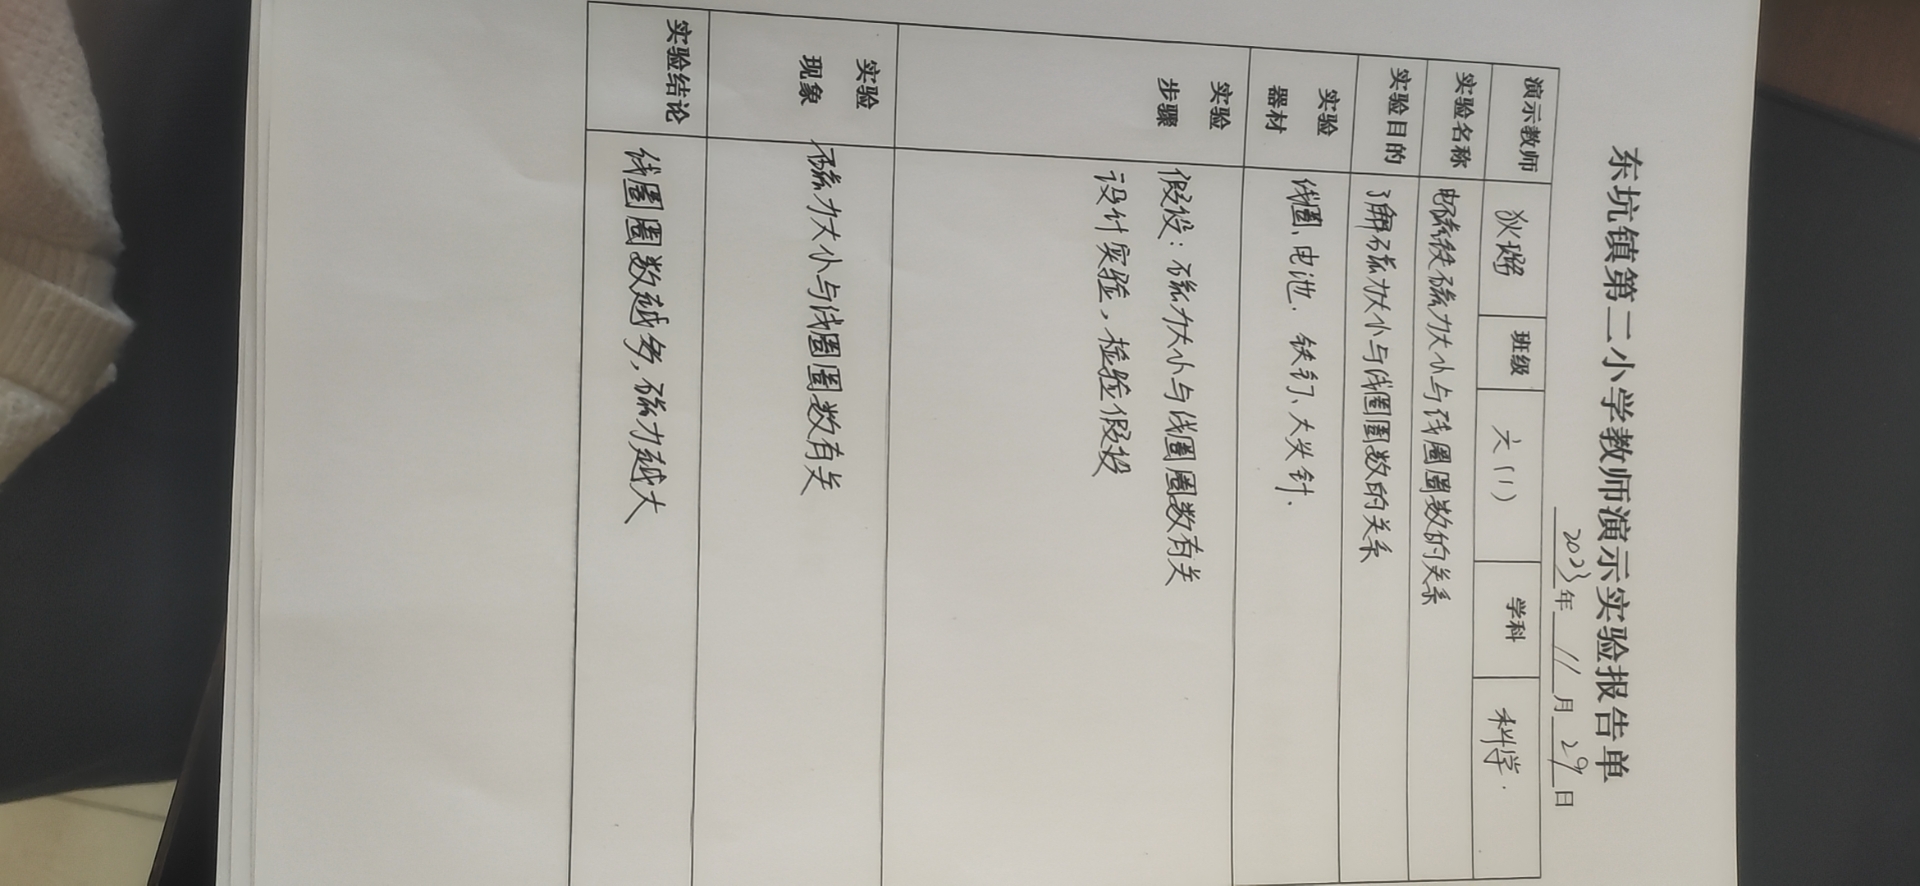 东坑镇第二小学教师演示实验报告单
2023年 11月 29日
演示教师 狄 班级 六(1) 学科 科学.
实验名称 电磁铁磁力大小与线圈圈数的关系
实验目的 了解磁力大小与线圈圈数的关系
实验器材 线圈、电池. 铁钉、大头针.
实验步骤 假设：磁力大小与线圈圈数有关
设计实验，检验假设
实验现象 磁力大小与线圈圈数有关
实验结论 线圈圈数越多，磁力越大